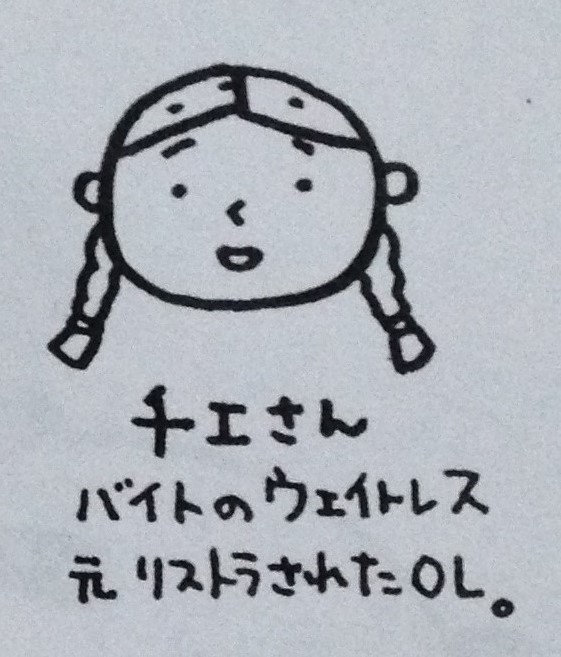 チエさん
バイトのウェイトレス
元リストラされたOL。